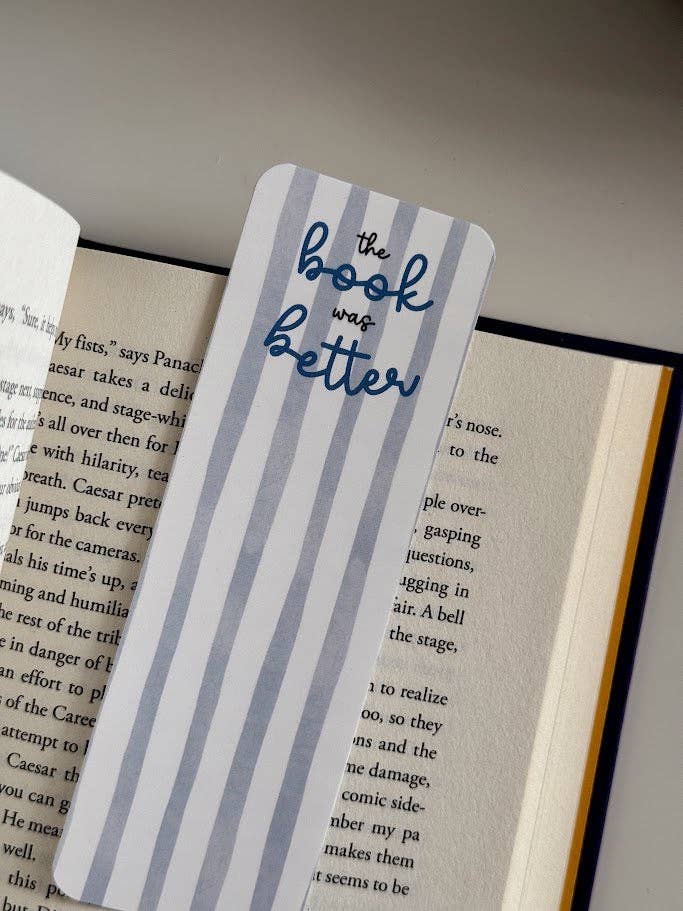 the
book
was
better
ays, "Sure, it
My fists," says Panac
aesar takes a
ence, and stage-whi
's all over then for
e with hilarity, tea
breath. Caesar pret
jumps back every
or for the cameras.
als his time's up, a
ming and humilia
he rest of the trib
e in danger of
an effort to pl
s of the Caree
attempt to
Caesar th
you can g
He mea
well.
this
but
r's nose.
to the
ple over-
, gasping
questions,
ugging in
air. A bell
the stage,
to realize
oo, so they
ons and the
me damage,
comic side-
mber my pa
makes them
it seems to be